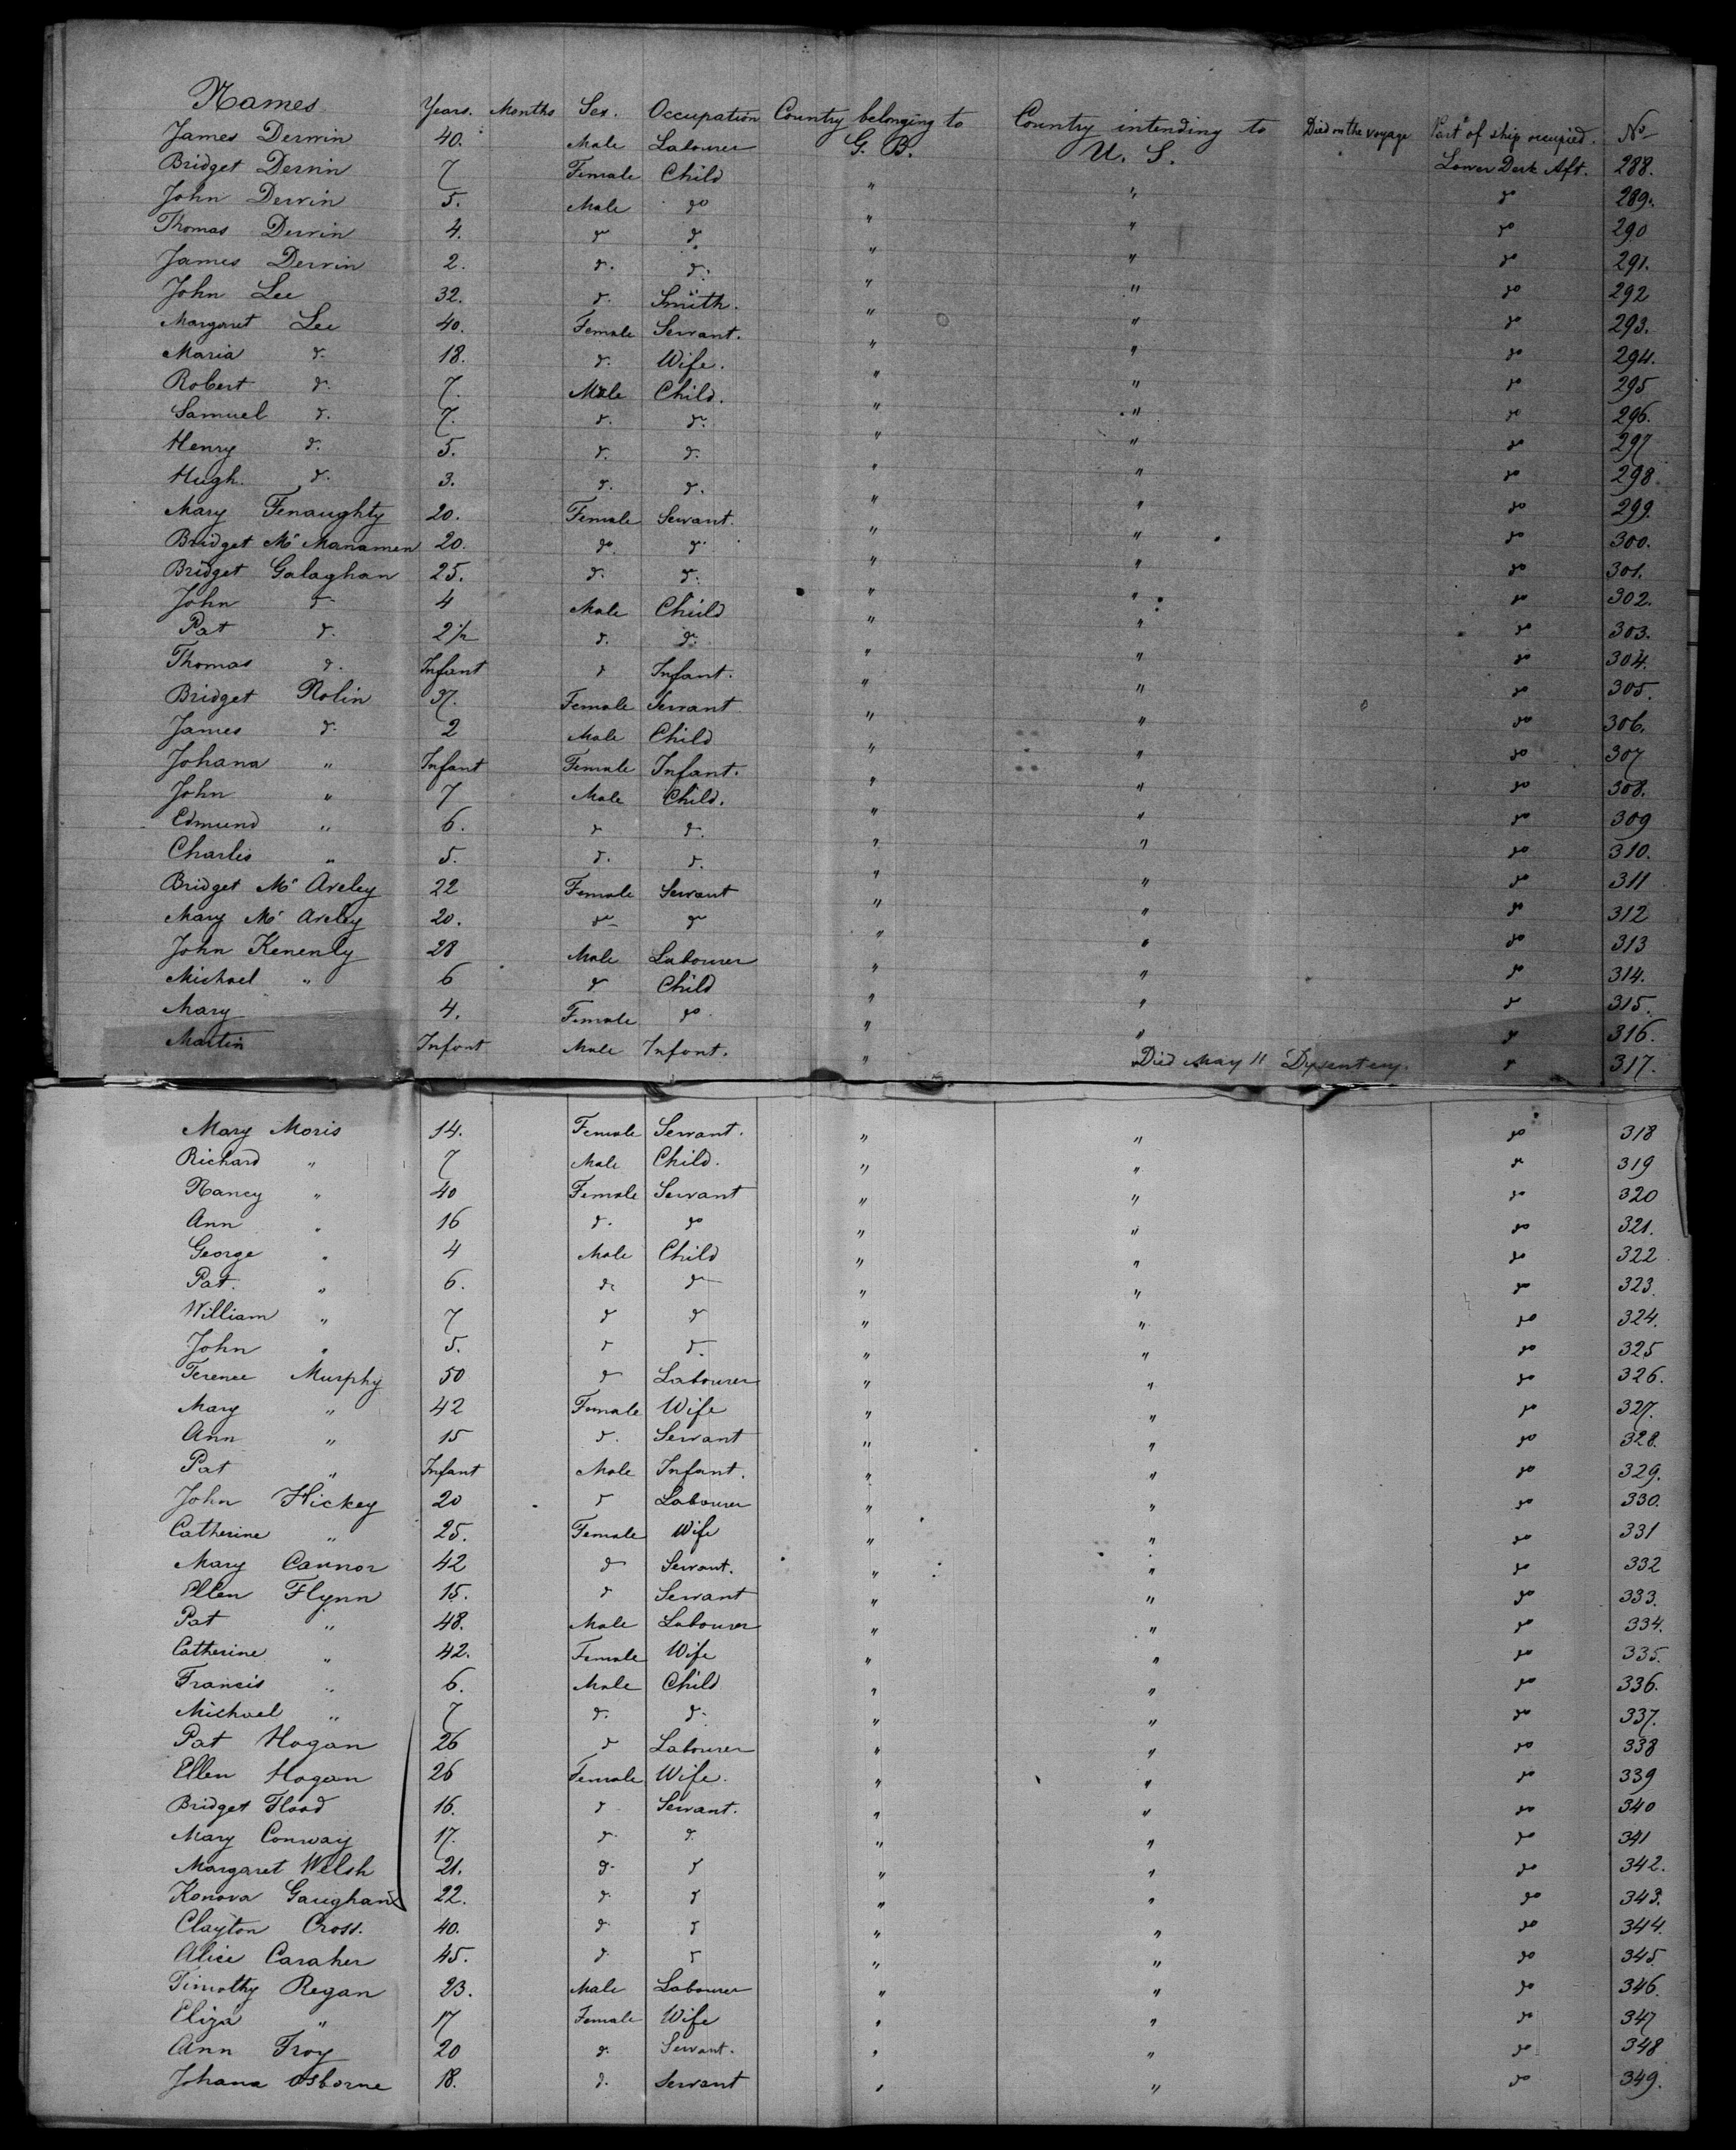 Names Years. Months Sex. Occupation Country belonging to Country intending to Died on the voyage Part of ship occupied. No
James Derwin 40. Male Labourer G. B. U. S. Lower Deck Aft. 288.
Bridget Dervin 7 Female Child " " do 289.
John Dervin 5. Male do " " do 290
Thomas Dervin 4. do do " " do 291.
James Dervin 2. do. do. " " do 292
John Lee 32. do. Smith. " " do 293.
Margaret Lee 40. Female Servant. " " do 294.
Maria do. 18. do. Wife. " " do 295
Robert do. 7. Male Child. " " do 296.
Samuel do. 7. do. do. " " do 297
Henry do. 5. do. do. " " do 298.
Hugh. do. 3. do. do. " " do 299.
Mary Fenaughty 20. Female Servant. " " do 300.
Bridget Mc Manamen 20. do. do. " " do 301.
Bridget Galaghan 25. do. do. " " do 302.
John do 4 Male Child " " do 303.
Pat do. 2 1/2 do. do. " " do 304.
Thomas do. Infant do Infant. " " do 305.
Bridget Nolin 37. Female Servant " " do 306.
James do. 2 Male Child " " do 307
Johana " Infant Female Infant. " " do 308.
John " 7 Male Child. " " do 309
Edmund " 6. do do. " " do 310.
Charlis " 5. do. do. " " do 311
Bridget Mc Aveley 22 Female Servant " " do 312
Mary Mc Aveley 20. do do " " do 313
John Kenenly 28 Male Labourer " " do 314.
Michael " 6 do Child " " do 315.
Mary 4. Female do. " " do 316.
Martin Infant Male Infant. " Died May 11 Dysentery. do 317.
Mary Moris 14. Female Servant. " " do 318
Richard " 7 Male Child. " " do 319
Nancy " 40 Female Servant " " do 320
Ann " 16 do. do " " do 321.
George " 4 Male Child " " do 322
Pat. " 6. do do " " do 323.
William " 7 do do " " do 324.
John " 5. do do. " " do 325
Terence Murphy 50 do Labourer " " do 326.
Mary " 42 Female Wife " " do 327.
Ann " 15 do. Servant " " do 328.
Pat " Infant Male Infant. " " do 329.
John Hickey 20 do Labourer " " do 330.
Catherine " 25. Female Wife " " do 331
Mary Cannor 42 do Servant. " " do 332
Ellen Flynn 15. do Servant " " do 333.
Pat " 48. Male Labourer " " do 334.
Catherine " 42. Female Wife " " do 335.
Francis " 6. Male Child " " do 336.
Michael " 7 do. do. " " do 337.
Pat Hogan 26 do Labourer " " do 338
Ellen Hogan 26 Female Wife. " " do 339
Bridget Flood 16. do Servant. " " do 340
Mary Conway 17. do do. " " do 341
Margaret Welsh 21. do. do " " do 342.
Konova Gaughan 22. do. do " " do 343.
Clayton Cross. 40. do. do " " do 344.
Alice Caraher 45. do. do " " do 345.
Timothy Regan 23. Male Labourer " " do 346.
Eliza " 17 Female Wife " " do 347
Ann Troy 20 do. Servant. " " do 348
Johana Osborne 18. do. Servant " " do 349.